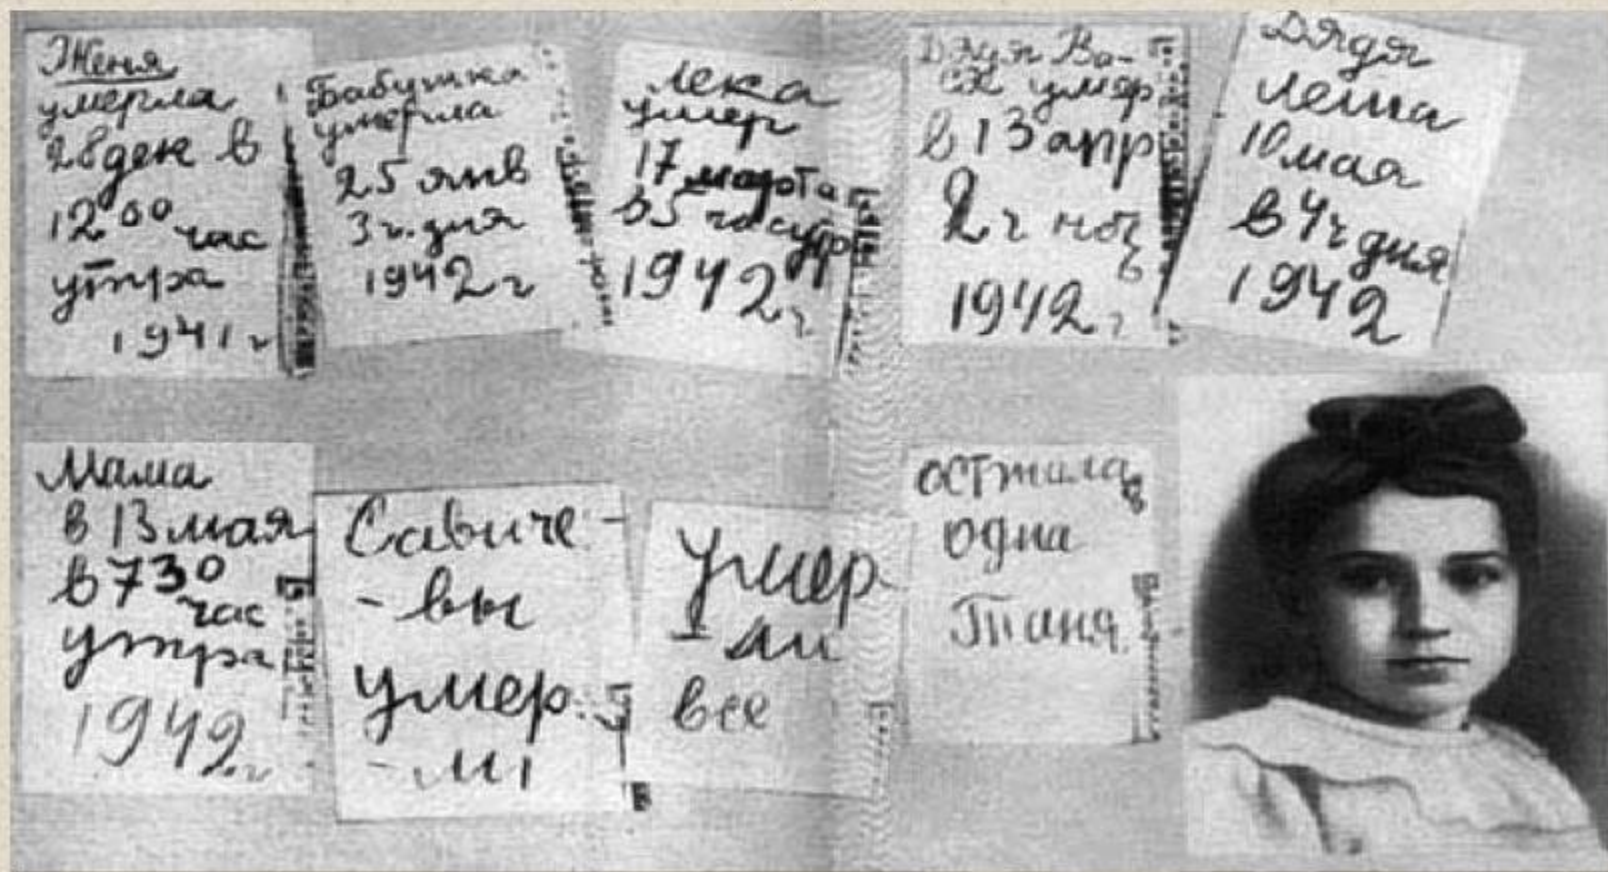 Женя
умерла
28 дек в
12⁰⁰ час
утра
1941 г
Бабушка
умерла
25 янв
3 ч. дня
1942 г
Лека
умер
17 марта
в 5 час утр
1942 г
Дядя Ва-
ся умер
в 13 апр
2 ч ноч
1942 г
Дядя
Леша
10 мая
в 4 ч дня
1942
Мама
в 13 мая
в 7 30
час
утра
1942 г
Савиче-
-вы
умер
-ли
Умер
-ли
все
Осталась
одна
Таня